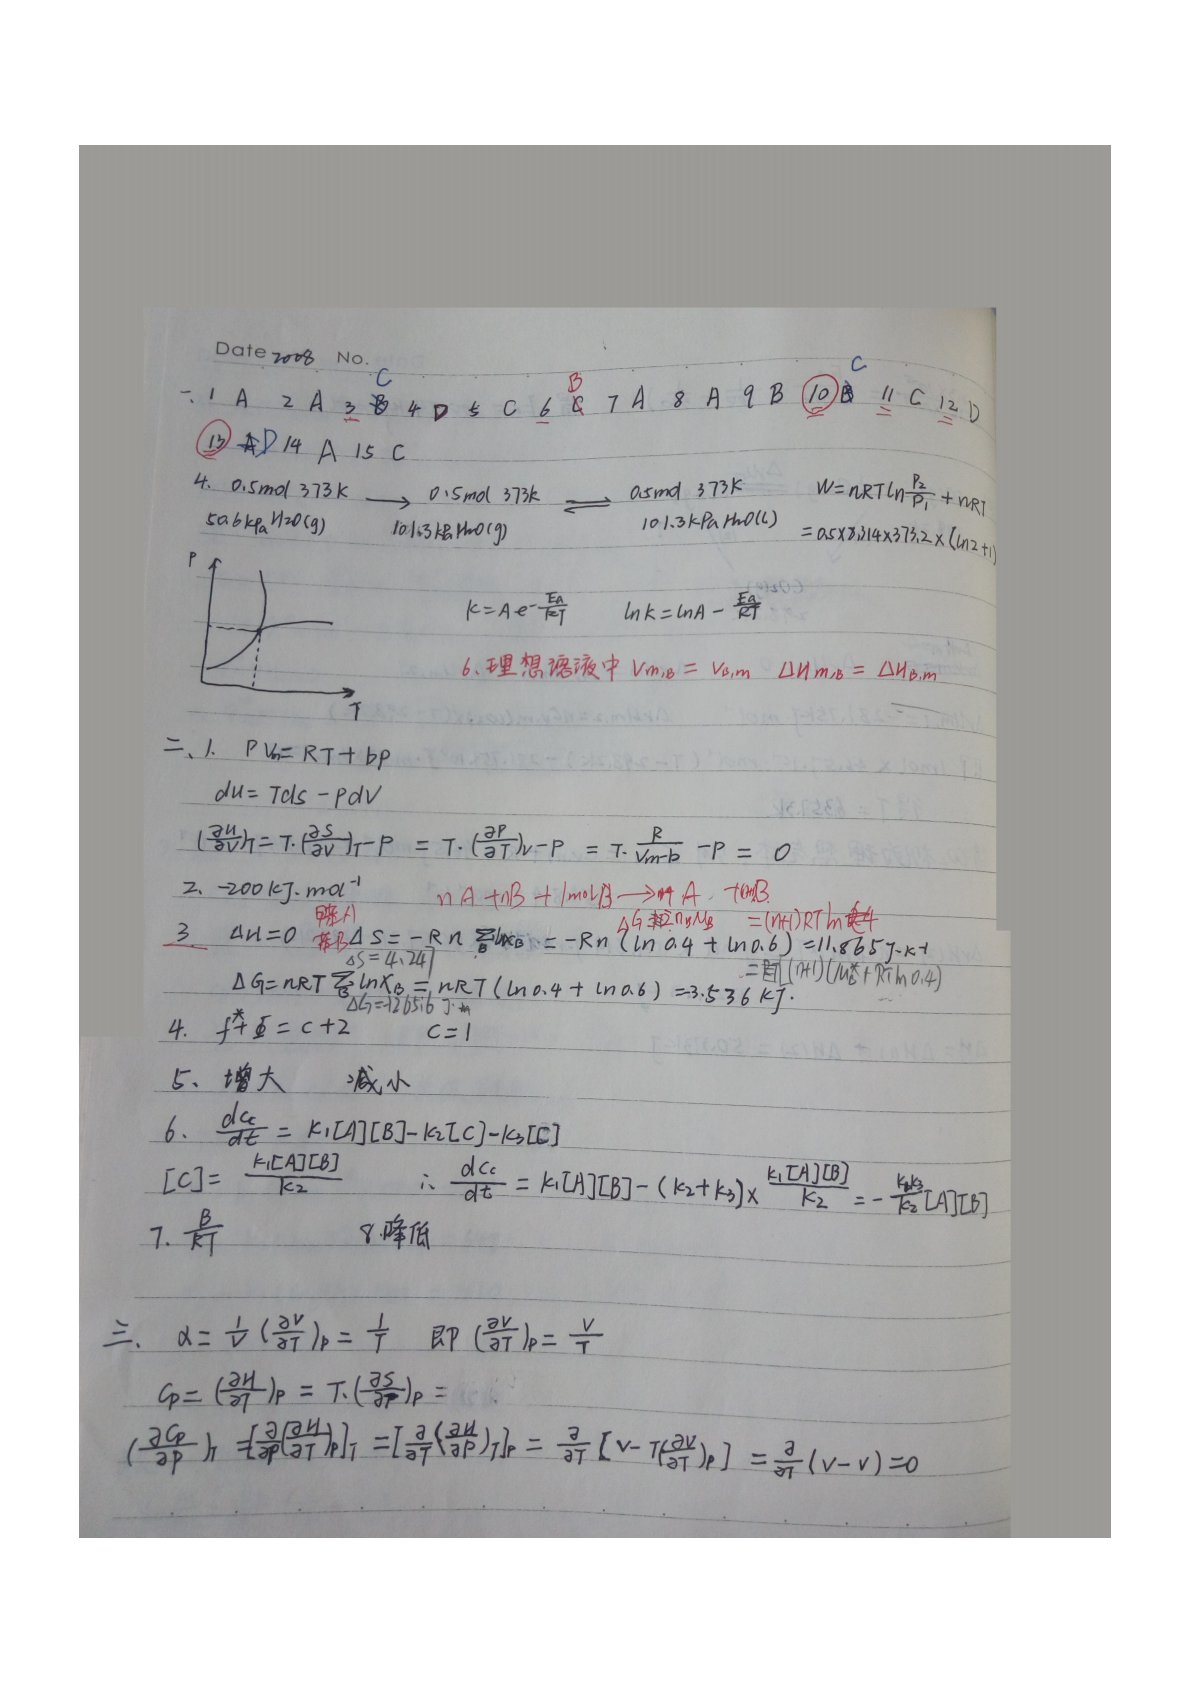 Date 2008 No.
一. 1 A 2 A 3 C 4 D 5 C 6 B 7 A 8 A 9 B 10 C 11 C 12 D
13 D 14 A 15 C
4. 0.5mol 373K → 0.5mol 373K ⇌ 0.5mol 373K W=nRTln P2/P1 + nRT
50.6kPa H2O(g) 101.3kPa H2O(g) 101.3kPa H2O(l) =0.5×8.314×373.2×(ln2+1)
P
K=Ae^-Ea/RT lnK=lnA-Ea/RT
6.理想溶液中 Vm,B = VB,m ΔHm,B = ΔHB,m
T
二、1. PVm=RT+bp
dU=Tds-pdV
(∂U/∂V)T=T·(∂S/∂V)T-P = T·(∂P/∂T)V-P = T·R/(Vm-b)-P = 0
2. -200kJ·mol⁻¹ nA+nB+1molB→nA
=(n+1)RTln
3 ΔH=0 ΔS=-Rn∑lnxB=-Rn(ln0.4+ln0.6)=11.865J·K⁻¹
ΔS=4.247
ΔG=nRT∑lnXB=nRT(ln0.4+ln0.6)=-3.536KJ.
ΔG=-1265.6 J
4. f*+Φ=C+2 C=1
5、增大 减小
6. dCc/dt = K1[A][B]-K2[C]-K3[C]
[C]= K1[A][B]/K2 ∴ dCc/dt = K1[A][B]-(K2+K3)×K1[A][B]/K2 =-K1K3/K2[A][B]
7. B/RT 8.降低
三、 α=1/V(∂V/∂T)P=1/T 即(∂V/∂T)P=V/T
CP=(∂H/∂T)P=T·(∂S/∂P)P=
(∂CP/∂P)T=[∂/∂P(∂H/∂T)P]T=[∂/∂T(∂H/∂P)T]P=∂/∂T[V-T(∂V/∂T)P]=∂/∂T(V-V)=0